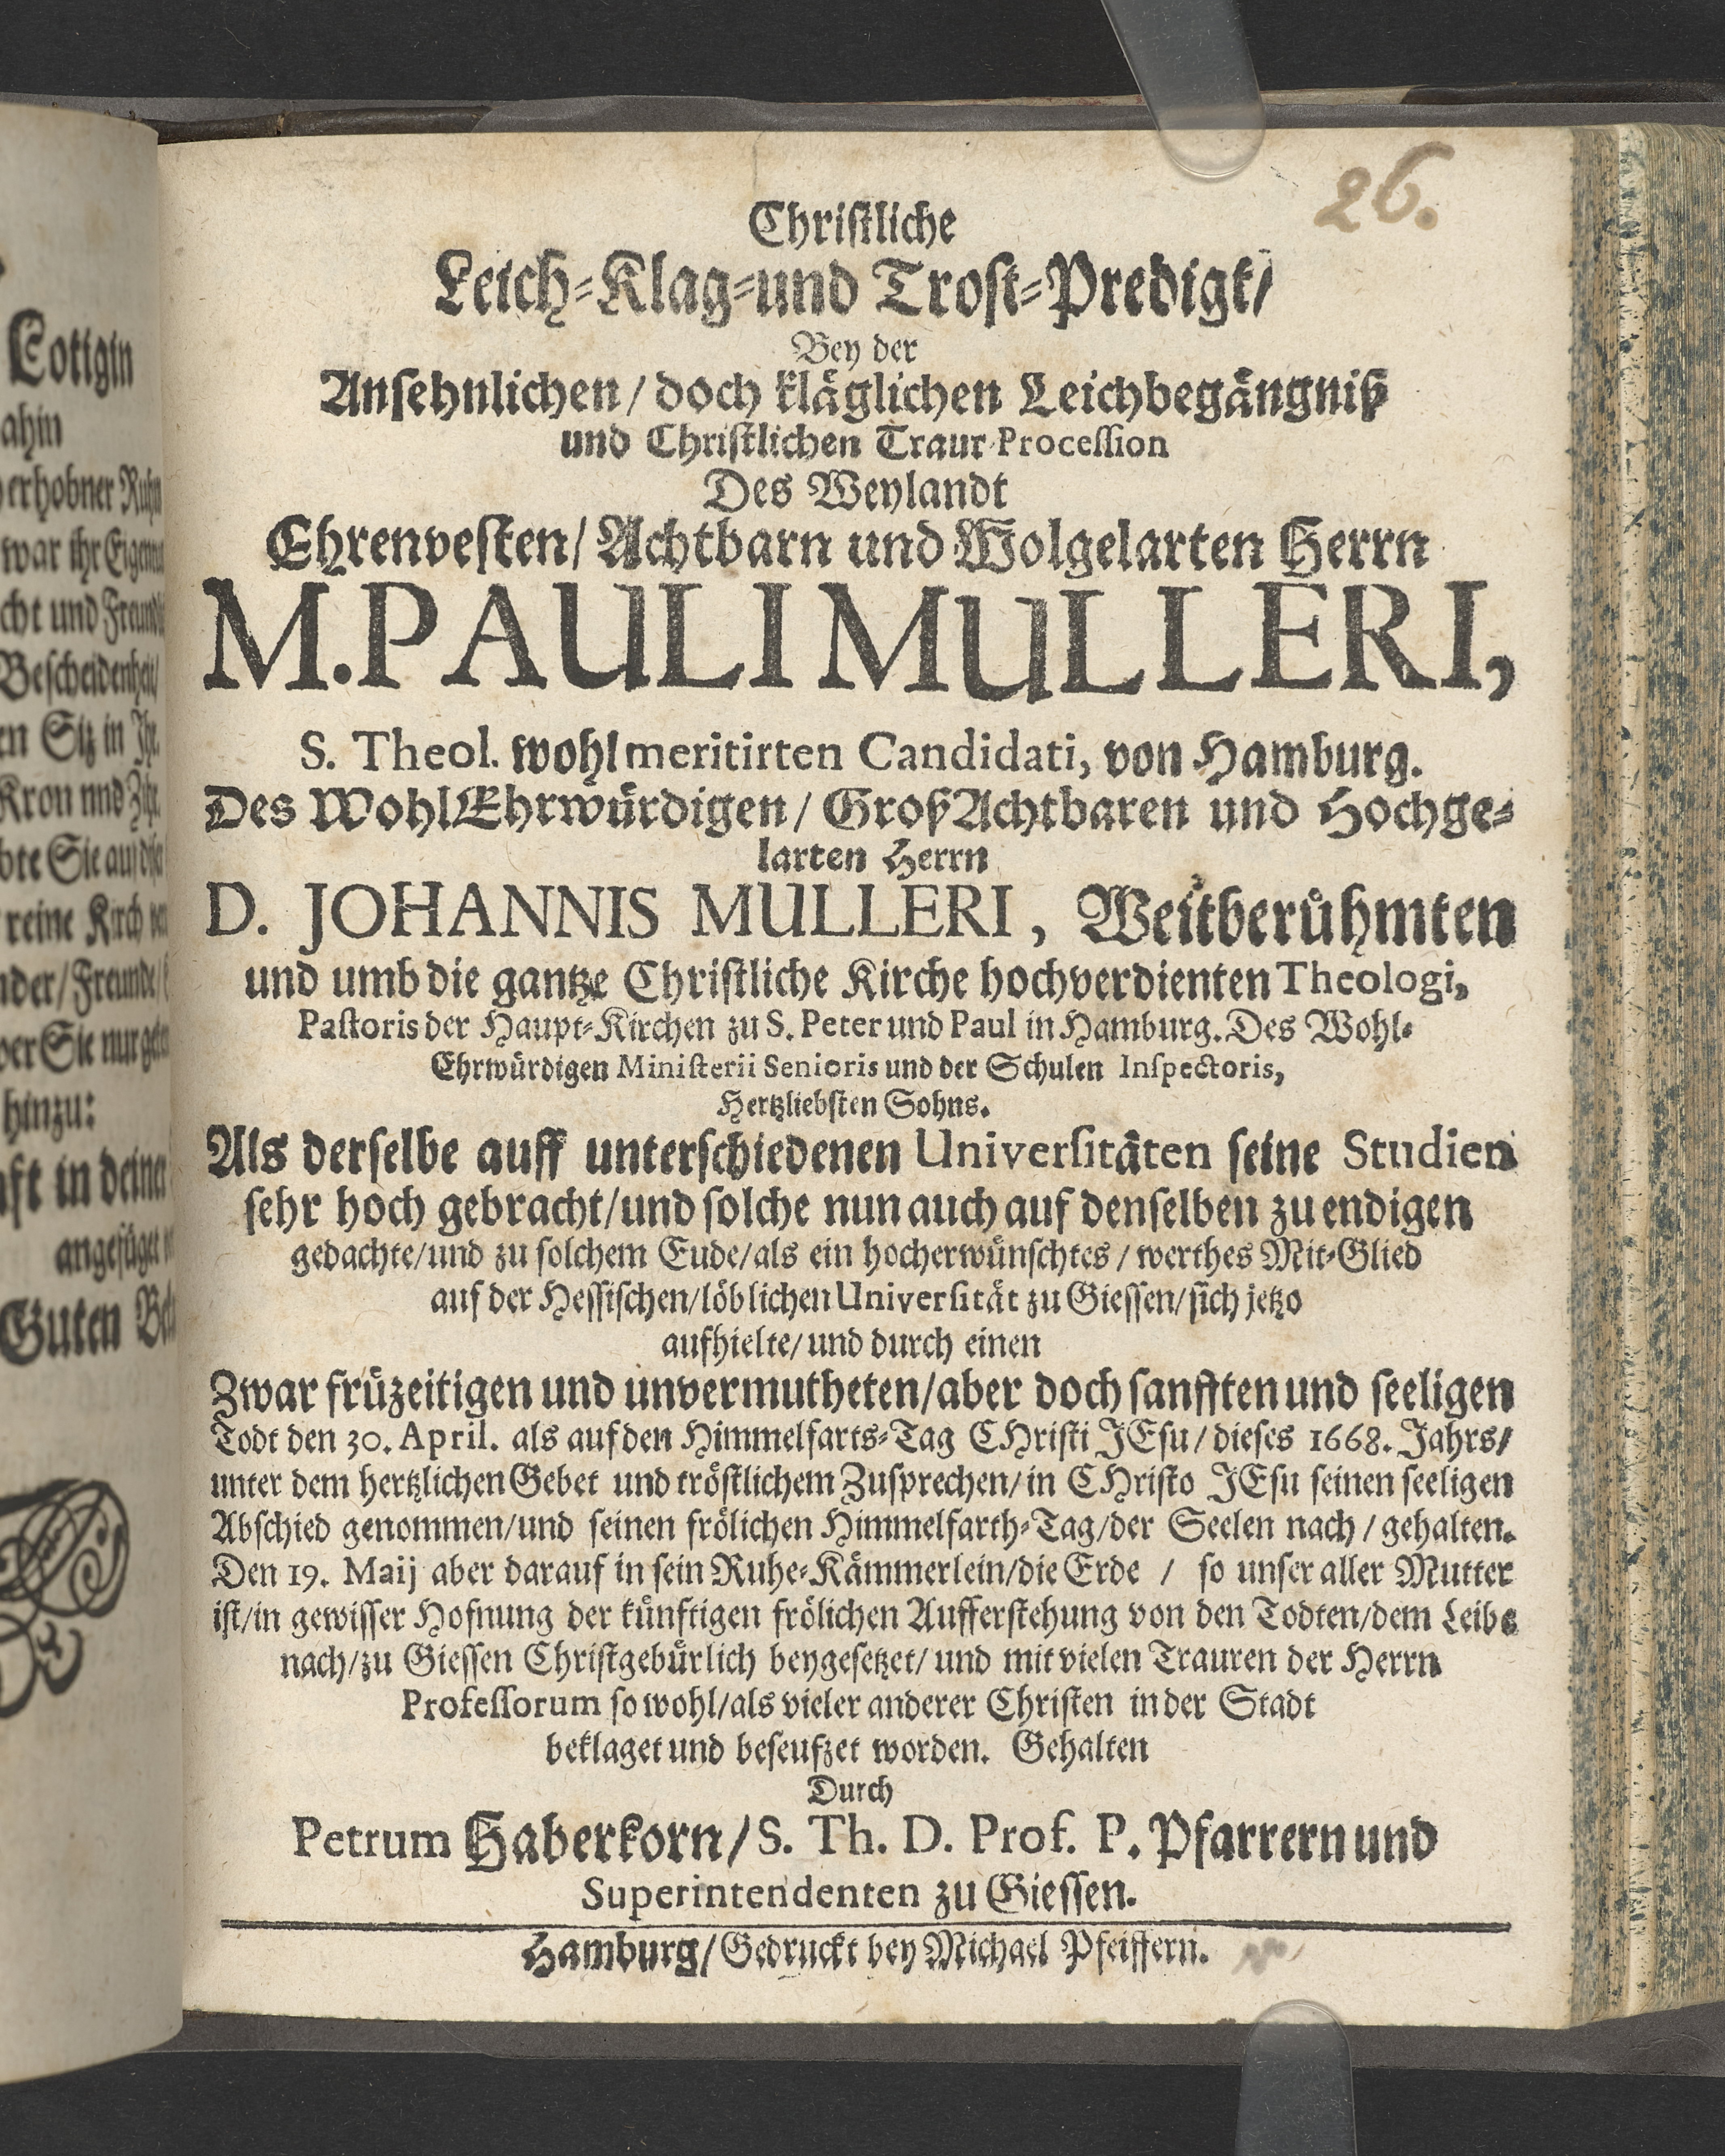 26.
Christliche
Leich-Klag-und Trost-Predigt/
Bey der
Ansehnlichen/ doch kläglichen Leichbegängniß
und Christlichen Traur-Procession
Des Weylandt
Ehrenvesten/ Achtbarn und Wolgelarten Herrn
M. PAULI MULLERI,
S. Theol. wohlmeritirten Candidati, von Hamburg.
Des WohlEhrwürdigen/ GroßAchtbaren und Hochge-
larten Herrn
D. JOHANNIS MULLERI, Weitberühmten
und umb die gantze Christliche Kirche hochverdienten Theologi,
Pastoris der Haupt-Kirchen zu S. Peter und Paul in Hamburg. Des Wohl-
Ehrwürdigen Ministerii Senioris und der Schulen Inspectoris,
Hertzliebsten Sohns.
Als derselbe auff unterschiedenen Universitäten seine Studien
sehr hoch gebracht/und solche nun auch auf denselben zu endigen
gedachte/und zu solchem Eude/als ein hocherwünschtes/ werthes Mit-Glied
auf der Hessischen/löblichen Universität zu Giessen/sich jetzo
aufhielte/ und durch einen
Zwar früzeitigen und unvermutheten/aber doch sanfften und seeligen
Todt den 30. April. als auf den Himmelfarts-Tag CHristi JEsu/ dieses 1668. Jahrs/
unter dem hertzlichen Gebet und tröstlichem Zusprechen/in CHristo JEsu seinen seeligen
Abschied genommen/und seinen frölichen Himmelfarth-Tag/der Seelen nach/ gehalten.
Den 19. Maij aber darauf in sein Ruhe-Kämmerlein/die Erde / so unser aller Mutter
ist/in gewisser Hofnung der künftigen frölichen Aufferstehung von den Todten/dem Leibe
nach/zu Giessen Christgebürlich beygesetzet/ und mit vielen Trauren der Herrn
Professorum so wohl/als vieler anderer Christen in der Stadt
beklaget und beseufzet worden. Gehalten
Durch
Petrum Haberkorn/ S. Th. D. Prof. P. Pfarrern und
Superintendenten zu Giessen.
Hamburg/ Gedruckt bey Michael Pfeiffern.